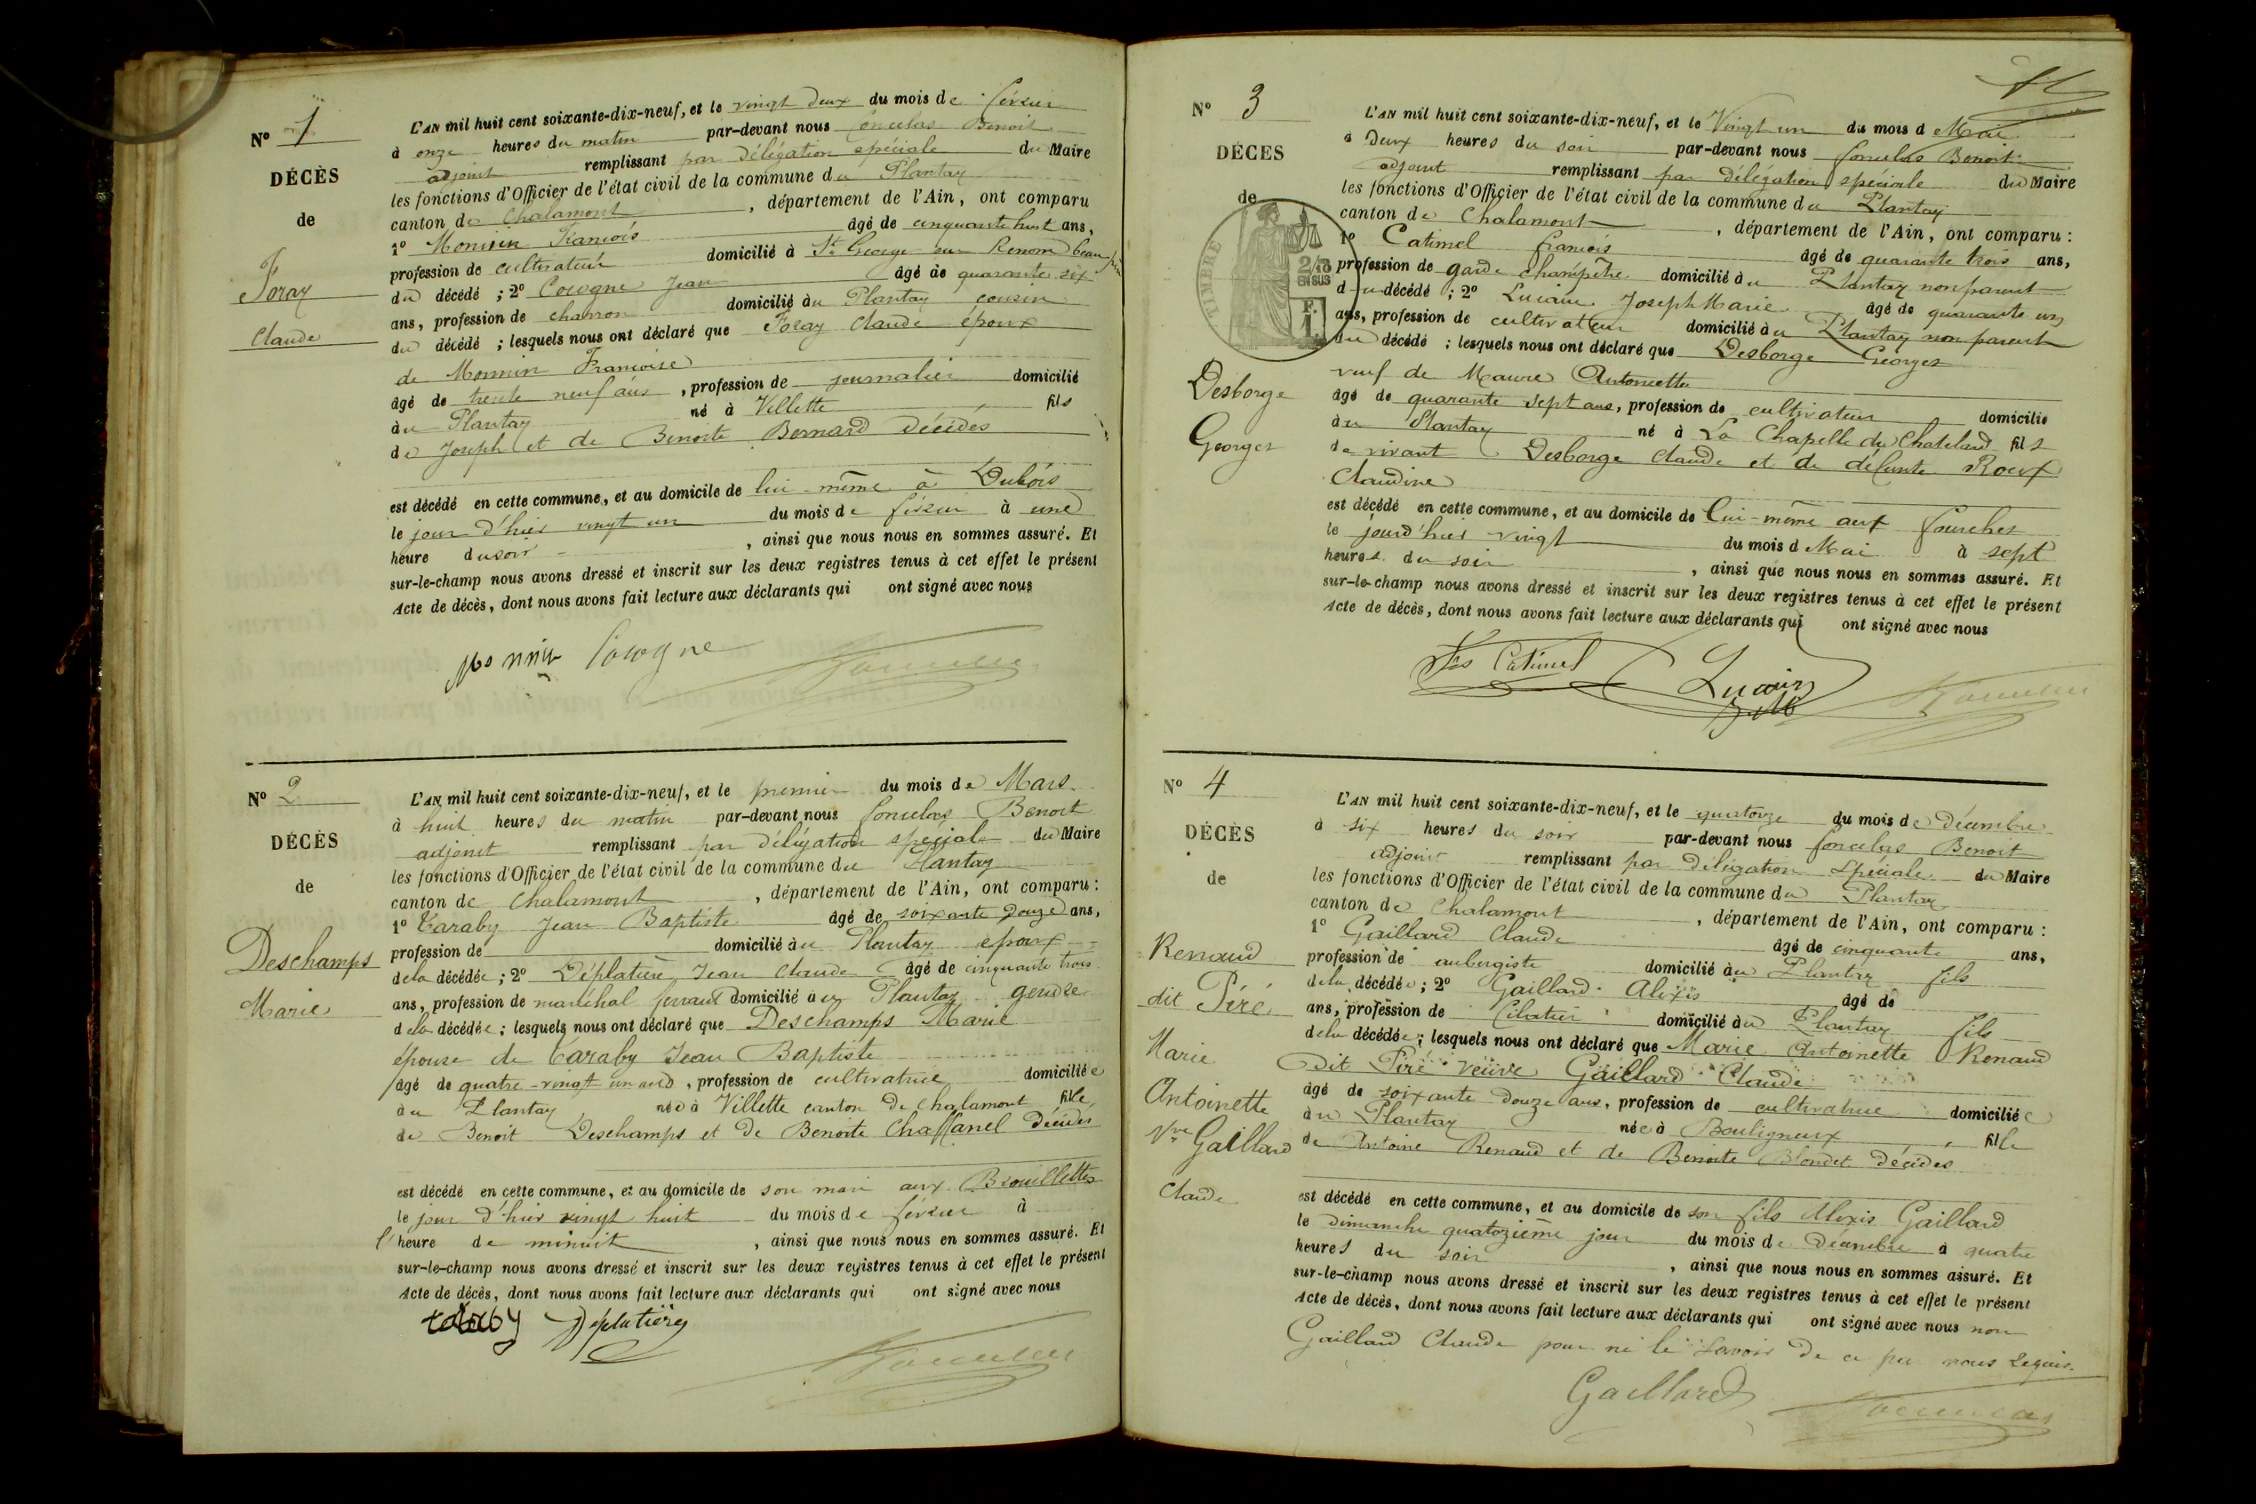 Nº 1
DÉCÈS
de
Foray
Claude
L'AN mil huit cent soixante-dix-neuf, et le vingt deux du mois de février
à onze heures du matin par-devant nous Benoit
adjoint remplissant par délégation spéciale du Maire
les fonctions d'Officier de l'état civil de la commune du Plantay
canton de Chalamont, département de l'Ain, ont comparu
1º Monnin François âgé de cinquante huit ans,
profession de cultivateur domicilié à St George sur Renom beau père
du décédé ; 2º Cocogne Jean âgé de quarante six
ans, profession de charron domicilié au Plantay cousin
du décédé ; lesquels nous ont déclaré que Foray Claude époux
de Monnin Françoise
âgé de trente neuf ans, profession de journalier domicilié
au Plantay né à Villette fils
de Joseph et de Benoite Bernard décédés
est décédé en cette commune, et au domicile de lui-même à Dubois
le jour d'hier vingt un du mois de février à une
heure du soir, ainsi que nous nous en sommes assuré. Et
sur-le-champ nous avons dressé et inscrit sur les deux registres tenus à cet effet le présent
Acte de décès, dont nous avons fait lecture aux déclarants qui ont signé avec nous
Monnin Cocogne
Nº 2
DÉCÈS
de
Deschamps
Marie
L'AN mil huit cent soixante-dix-neuf, et le premier du mois de Mars
à huit heures du matin par-devant nous Benoit
adjoint remplissant par délégation spéciale du Maire
les fonctions d'Officier de l'état civil de la commune du Plantay
canton de Chalamont, département de l'Ain, ont comparu :
1º Caraby Jean Baptiste âgé de soixante douze ans,
profession de domicilié au Plantay époux
de la décédée ; 2º Déplatière Jean Claude âgé de cinquante trois
ans, profession de maréchal ferrant domicilié au Plantay gendre
de la décédée ; lesquels nous ont déclaré que Deschamps Marie
épouse de Caraby Jean Baptiste
âgé de quatre-vingt un ans, profession de cultivatrice domiciliée
au Plantay née à Villette canton de Chalamont fille
de Benoit Deschamps et de Benoite Chaffanel décédés
est décédé en cette commune, et au domicile de son mari aux Brouillettes
le jour d'hier vingt huit du mois de février à
l'heure de minuit, ainsi que nous nous en sommes assuré. Et
sur-le-champ nous avons dressé et inscrit sur les deux registres tenus à cet effet le présent
Acte de décès, dont nous avons fait lecture aux déclarants qui ont signé avec nous
Déplatière
Nº 3
DÉCÈS
de
TIMBRE
2/10
EN SUS
F.
1.
Desborge
Georges
L'AN mil huit cent soixante-dix-neuf, et le Vingt un du mois d Mai
à Deux heures du soir par-devant nous Benoit
adjoint remplissant par délégation spéciale du Maire
les fonctions d'Officier de l'état civil de la commune du Plantay
canton de Chalamont, département de l'Ain, ont comparu :
1º Catimel François âgé de quarante trois ans,
profession de garde champêtre domicilié au Plantay non parent
du décédé ; 2º Luciain Joseph Marie âgé de quarante un
ans, profession de cultivatteur domicilié au Plantay non parent
du décédé ; lesquels nous ont déclaré que Desborge Georges
veuf de Maure Antoinette
âgé de quarante sept ans, profession de cultivateur domicilié
au Plantay né à La Chapelle du Chatelard fils
de vivant Desborge Claude et de défunte Roux
Claudine
est décédé en cette commune, et au domicile de lui-même aux fourches
le jour d'hier vingt du mois d Mai à sept
heures du soir, ainsi que nous nous en sommes assuré. Et
sur-le-champ nous avons dressé et inscrit sur les deux registres tenus à cet effet le présent
Acte de décès, dont nous avons fait lecture aux déclarants qui ont signé avec nous
Fçs Catimel
Nº 4
DÉCÈS
de
Renaud
dit Piré
Marie
Antoinette
Vve Gaillard
Claude
L'AN mil huit cent soixante-dix-neuf, et le quatorze du mois de Décembre
à six heures du soir par-devant nous Benoit
adjoint remplissant par délégation spéciale du Maire
les fonctions d'Officier de l'état civil de la commune du Plantay
canton de Chalamont, département de l'Ain, ont comparu :
1º Gaillard Claude âgé de cinquante ans,
profession de aubergiste domicilié au Plantay fils
de la décédée ; 2º Gaillard Alexis âgé de
ans, profession de domicilié au Plantay fils
de la décédée ; lesquels nous ont déclaré que Marie Antoinette Renaud
Dit Piré veuve Gaillard Claude
âgé de soixante douze ans, profession de cultivatrice domiciliée
au Plantay née à Bouligneux fille
de Antoine Renaud et de Benoite Blondet décédés
est décédé en cette commune, et au domicile de son fils Alexis Gaillard
le dimanche quatorzième jour du mois de Décembre à quatre
heures du soir, ainsi que nous nous en sommes assuré. Et
sur-le-champ nous avons dressé et inscrit sur les deux registres tenus à cet effet le présent
Acte de décès, dont nous avons fait lecture aux déclarants qui ont signé avec nous non
Gaillard Claude pour ne le savoir de ce par nous requis
Gaillard